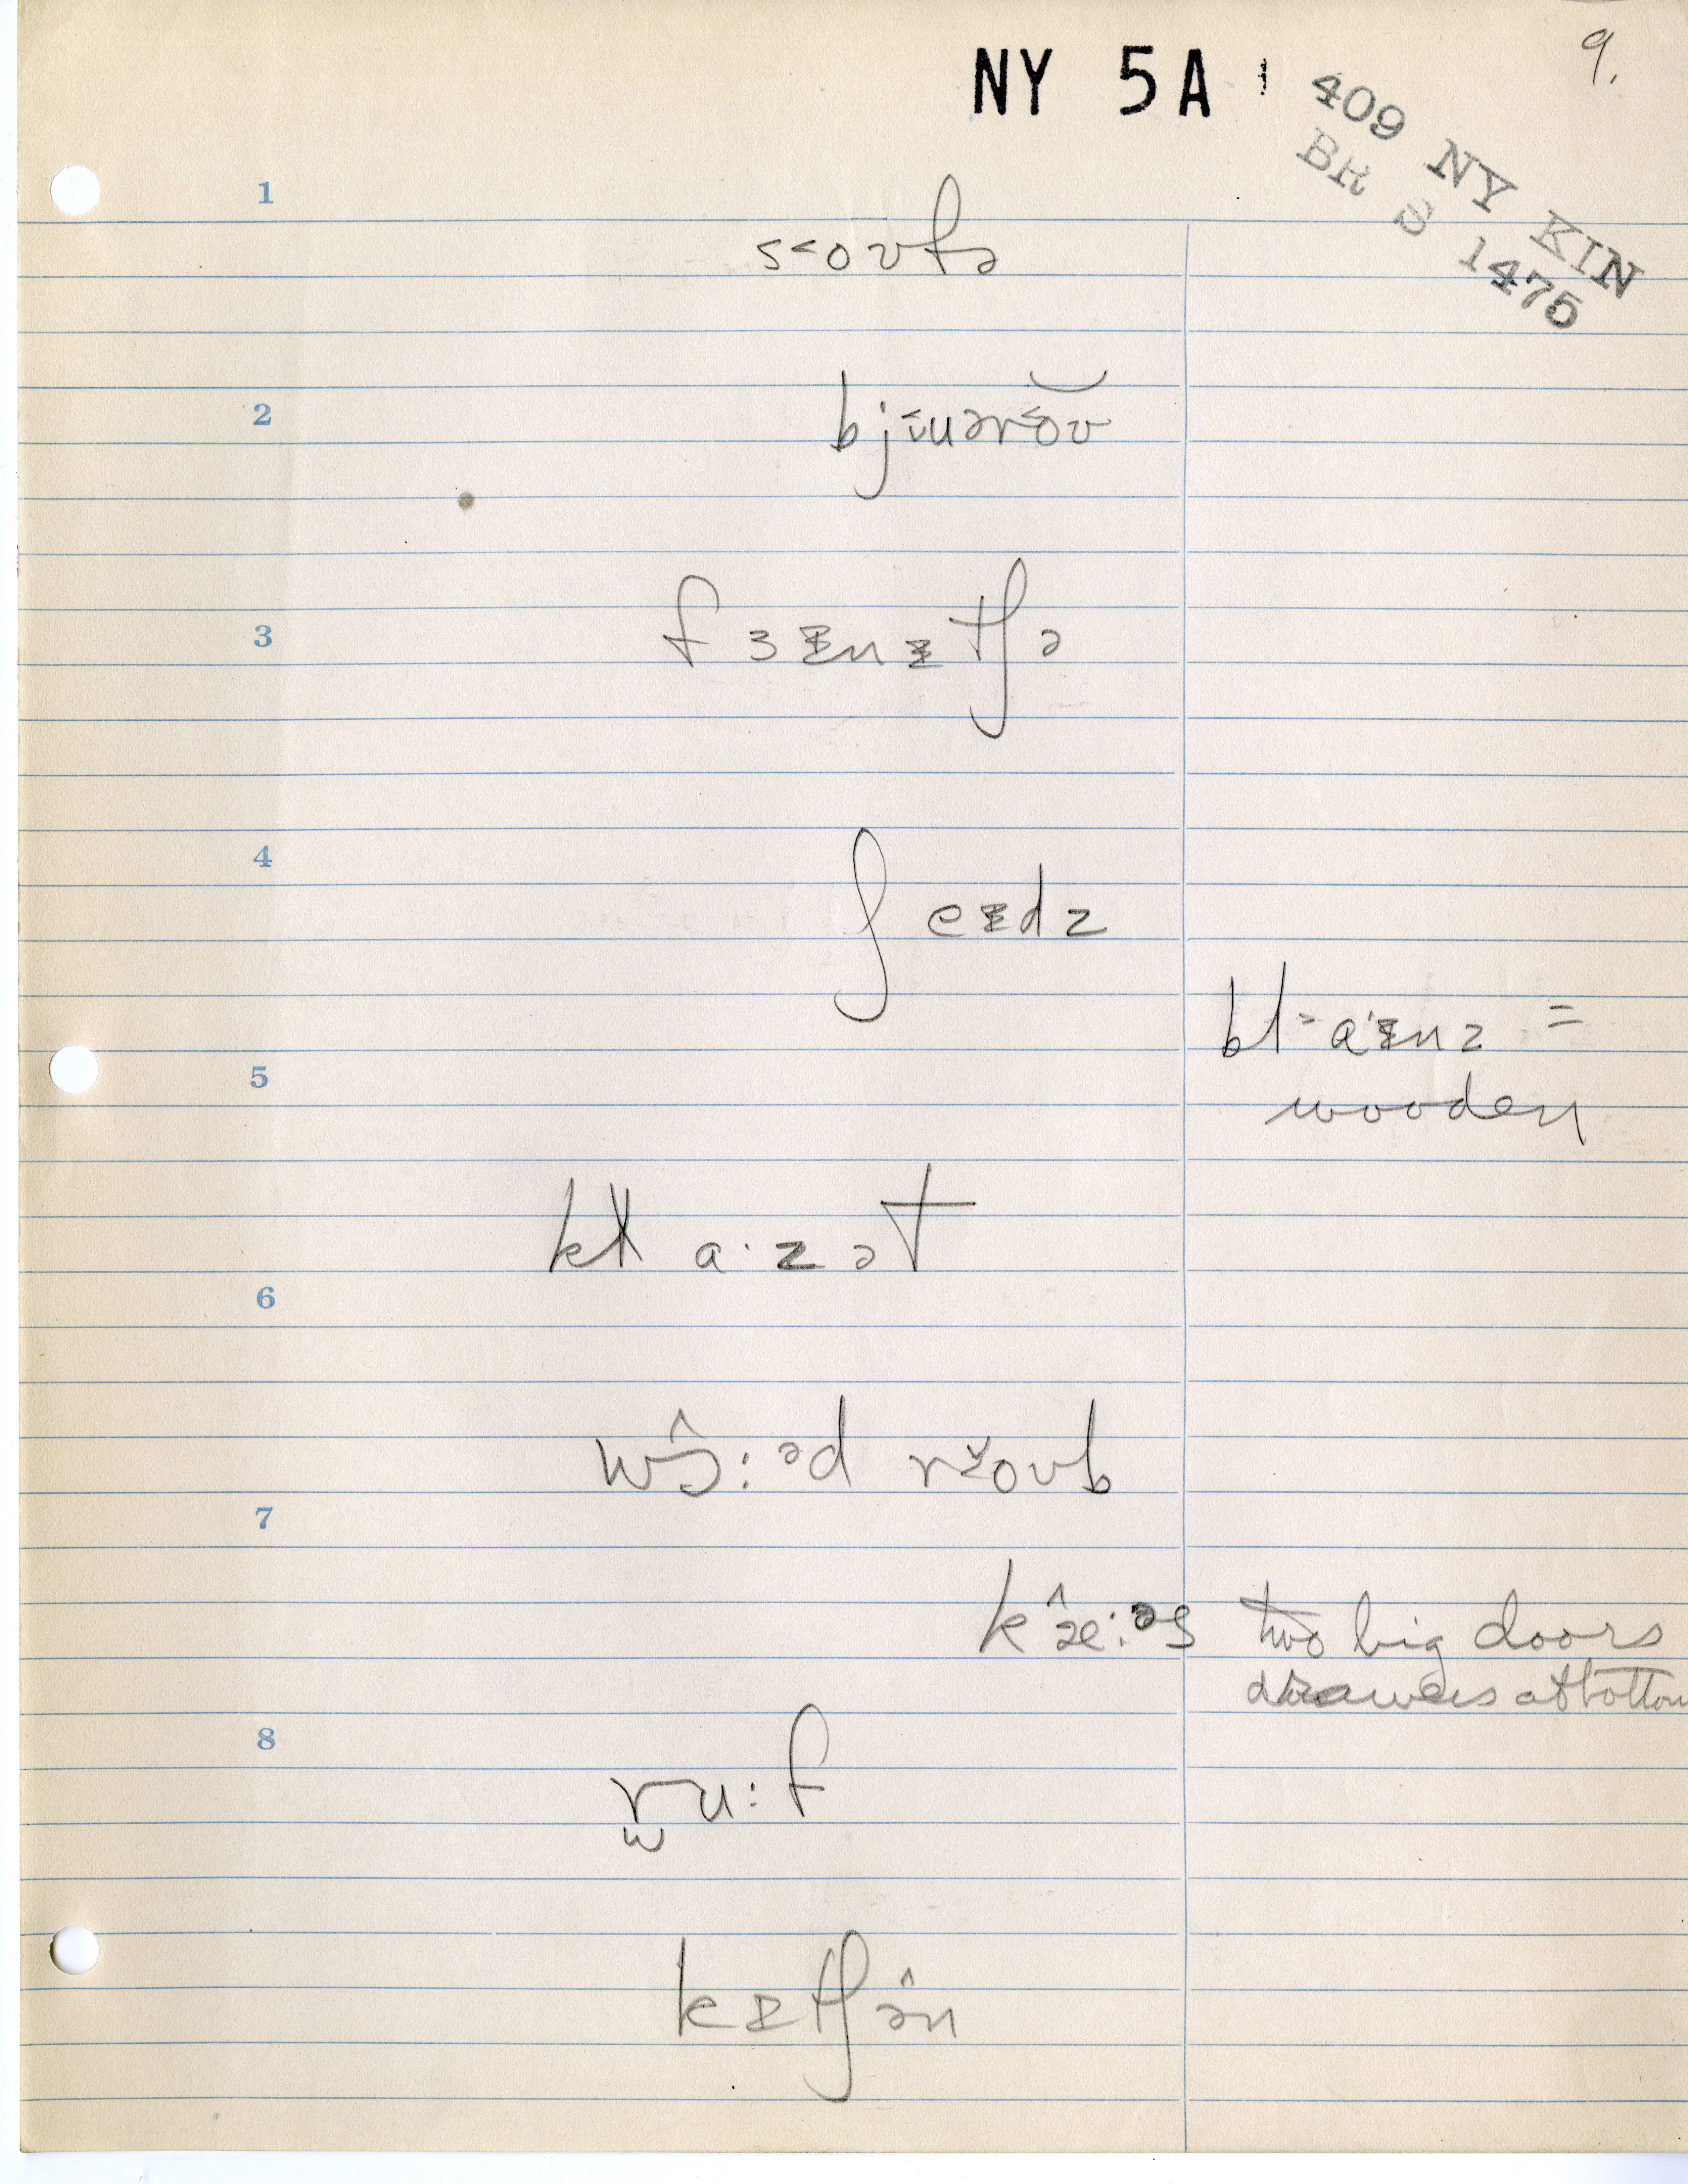 9.
NY 5A
409 NY KIN
BR S 1475
1
s˂oʊfə
2
bjɪ̆uər˂ŏʊ
3
fɜᵻnᵻtʃə
4
ʃeᵻdz
bl˃aᵻnz =
5
wooden
klɑ·zət
6
wɔ̂:ᵊd r˃̌oʊb
7
kæ̂:ᵊs two big doors
drawers at bottom
8
r̫u:f
kᵻtʃə̂n